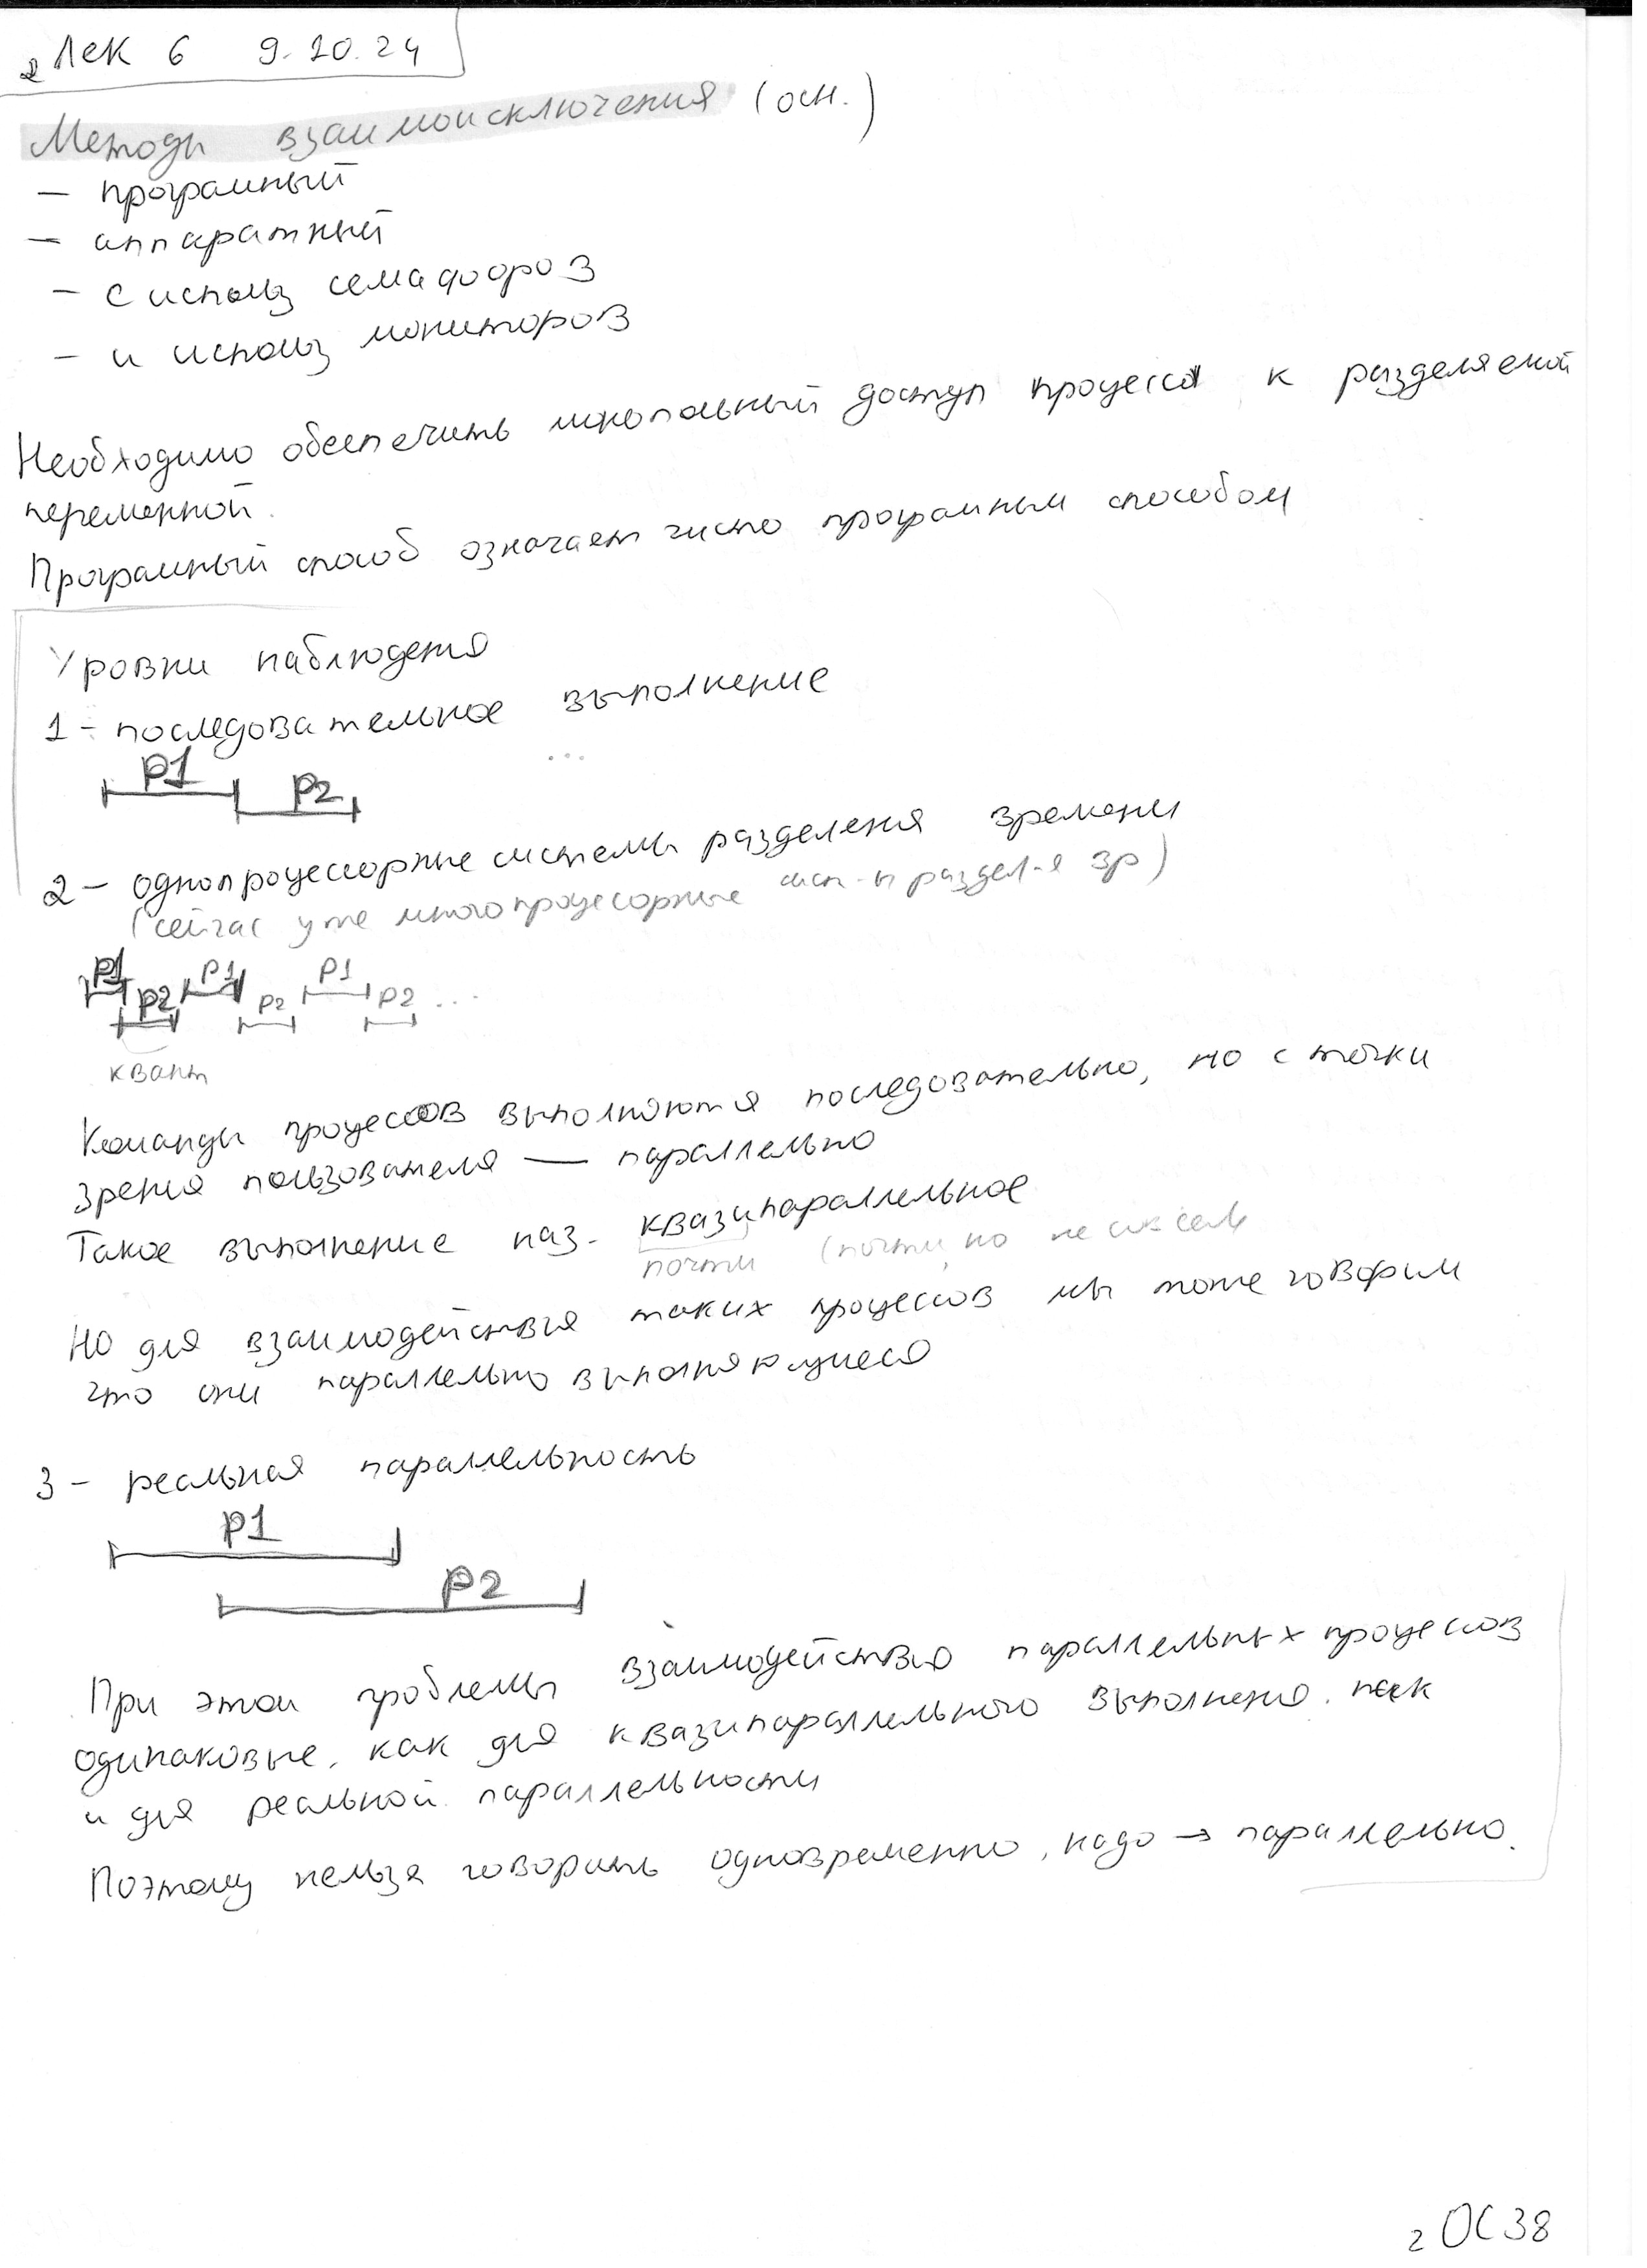 Лек 6 9.10.24
Методы взаимоисключения (осн.)
— програмный
— аппаратный
— с использ семафоров
— и использ мониторов
Необходимо обеспечить монопольный доступ процесса к разделяемой
переменной.
Програмный способ означает чисто програмным способом
Уровни наблюдения
1 - последовательное выполнение
...
P1
P2
2 - однопроцессорные системы разделения времени
(сейчас уже многопроцесорные сист-ы раздел-я вр)
P1 P1 P1
P2 P2 P2 ...
квант
Команды процессов выполняются последовательно, но с точки
зрения пользователя — параллельно
Такое выполнение наз. квазипараллельное
почти (почти, но не совсем
НО для взаимодействия таких процессов мы тоже говорим
что они параллельно выполняющиеся
3 - реальная параллельность
P1
P2
При этом проблемы взаимодействия параллельных процессов
одинаковые, как для квазипараллельного выполнения. так
и для реальной параллельности
Поэтому нельзя говорить одновременно, надо → параллельно.
2 ОС 38